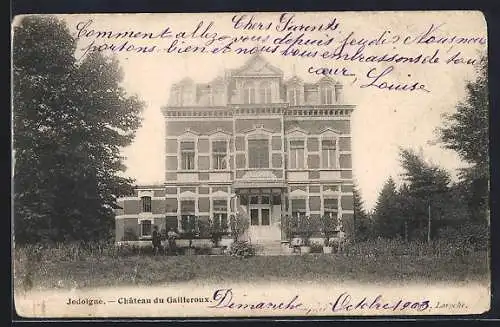 Chers Parents
Comment allez vous depuis jeudi? Nous nous
portons bien et nous vous embrassons de tout
cœur
Louise
Jodoigne. — Château du Gailleroux.
Dimanche Octobre 1903
Laroche.